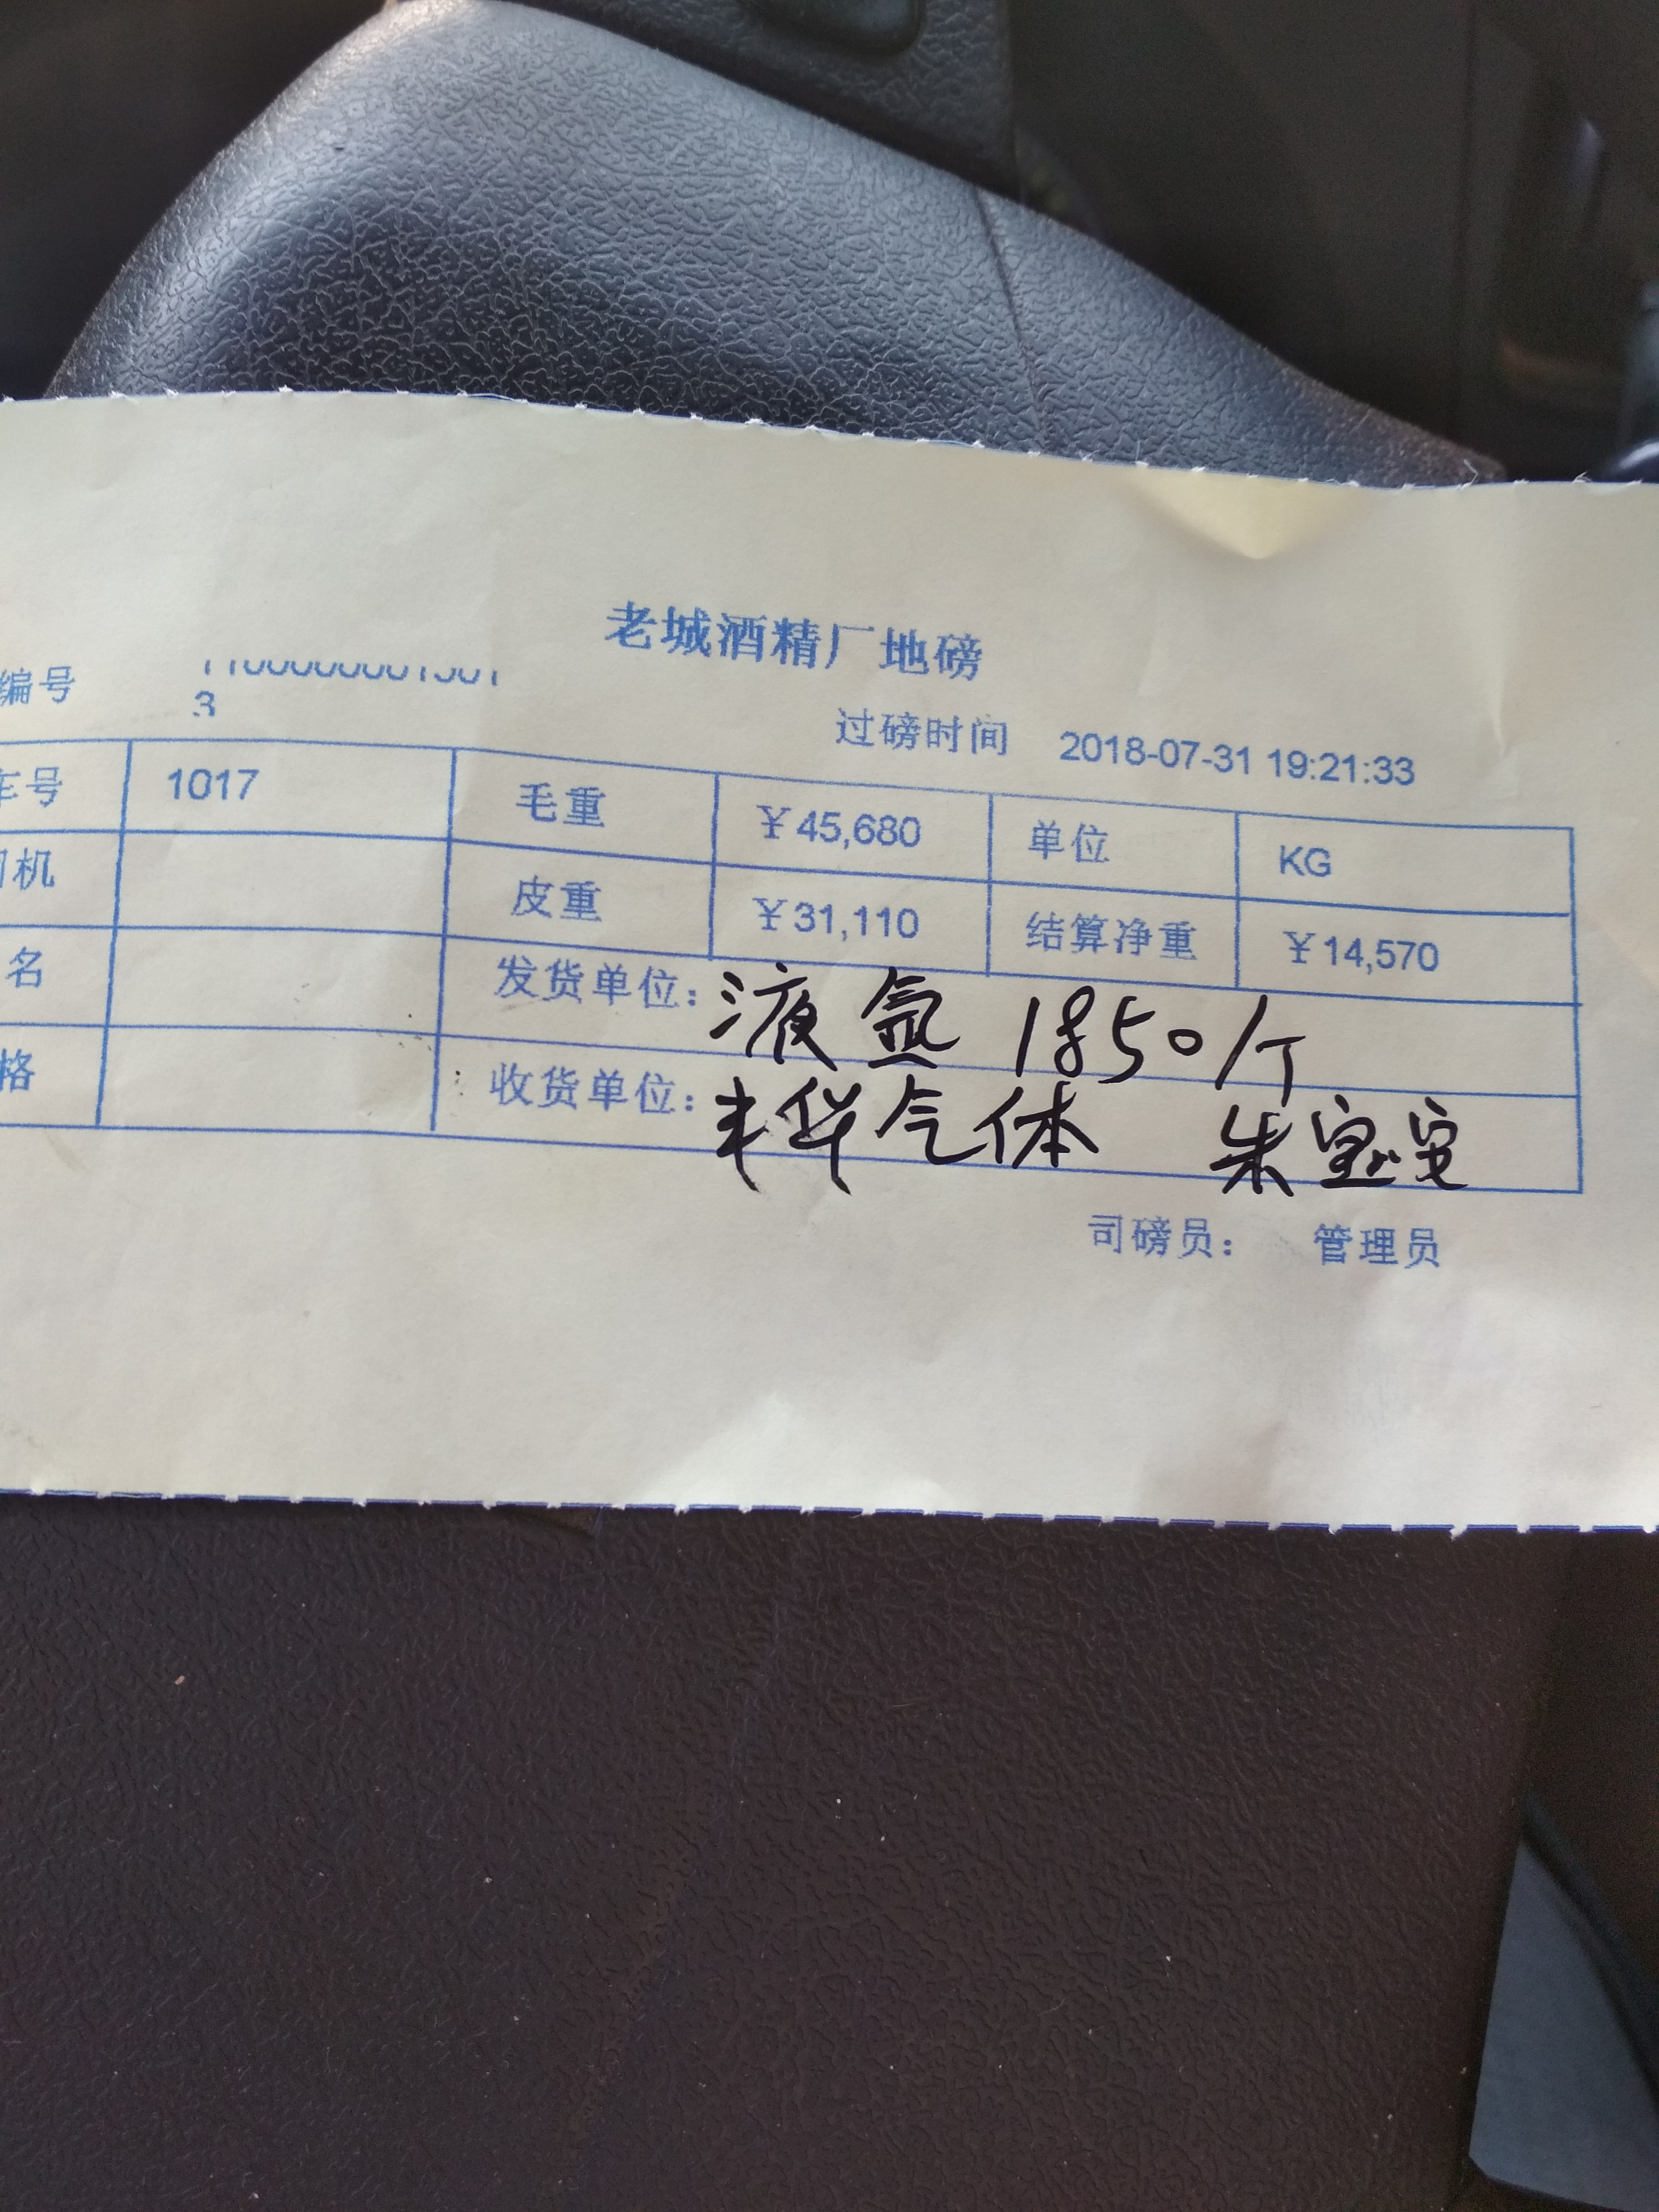 老城酒精厂地磅
编号 3
过磅时间 2018-07-31 19:21:33
车号 1017 毛重 ¥45,680 单位 KG
司机 皮重 ¥31,110 结算净重 ¥14,570
名 发货单位: 液氩 1850/T
格 收货单位: 丰华气体 朱宝安
司磅员: 管理员